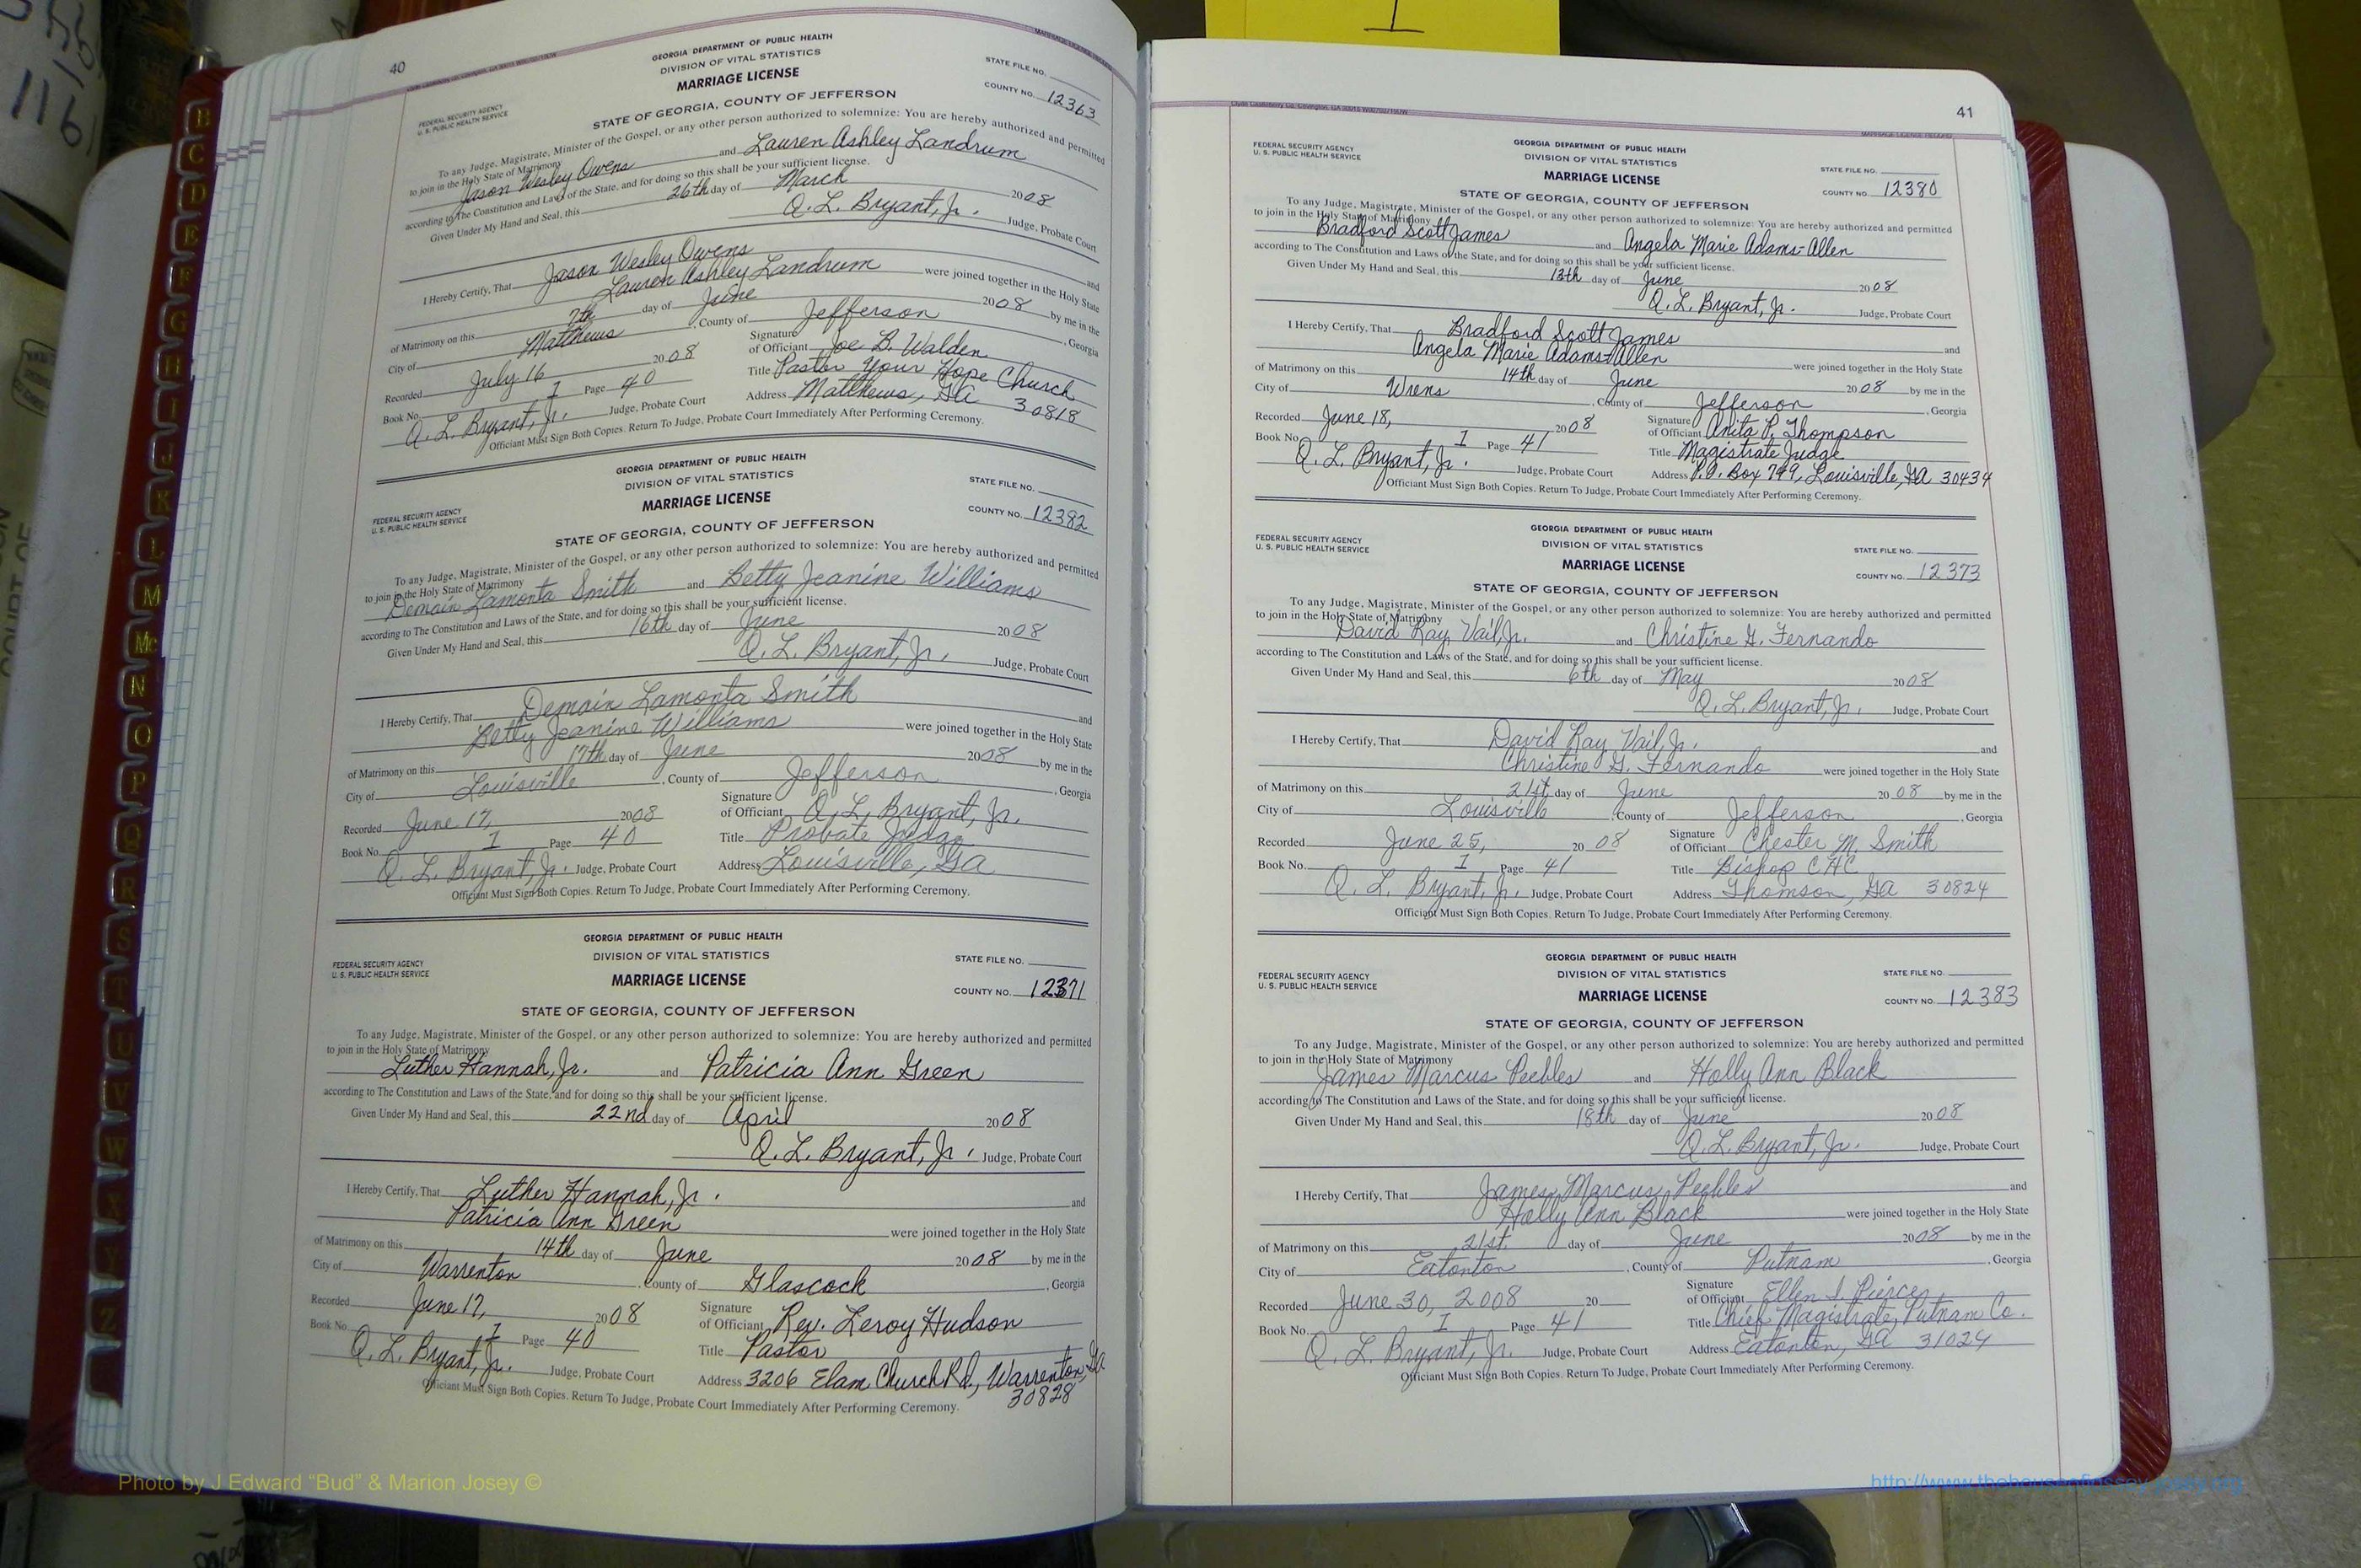 40
GEORGIA DEPARTMENT OF PUBLIC HEALTH
DIVISION OF VITAL STATISTICS
MARRIAGE LICENSE
STATE FILE NO.
COUNTY NO. 12363
FEDERAL SECURITY AGENCY
U. S. PUBLIC HEALTH SERVICE
STATE OF GEORGIA, COUNTY OF JEFFERSON
To any Judge, Magistrate, Minister of the Gospel, or any other person authorized to solemnize: You are hereby authorized and permitted
to join in the Holy State of Matrimony
Jason Wesley Owens and Lauren Ashley Landrum
according to The Constitution and Laws of the State, and for doing so this shall be your sufficient license.
Given Under My Hand and Seal, this 26th day of March 2008
Q. L. Bryant, Jr. Judge, Probate Court
I Hereby Certify, That Jason Wesley Owens and
Lauren Ashley Landrum were joined together in the Holy State
of Matrimony on this 7th day of June 2008 by me in the
City of Matthews, County of Jefferson, Georgia
Recorded July 16 2008 Signature of Officiant Joe B. Walden
Book No. I Page 40 Title Pastor Your Hope Church
Q. L. Bryant, Jr. Judge, Probate Court Address Matthews, GA 30818
Officiant Must Sign Both Copies. Return To Judge, Probate Court Immediately After Performing Ceremony.
GEORGIA DEPARTMENT OF PUBLIC HEALTH
DIVISION OF VITAL STATISTICS
MARRIAGE LICENSE
STATE FILE NO.
COUNTY NO. 12382
FEDERAL SECURITY AGENCY
U. S. PUBLIC HEALTH SERVICE
STATE OF GEORGIA, COUNTY OF JEFFERSON
To any Judge, Magistrate, Minister of the Gospel, or any other person authorized to solemnize: You are hereby authorized and permitted
to join in the Holy State of Matrimony
Demain Lamonta Smith and Betty Jeanine Williams
according to The Constitution and Laws of the State, and for doing so this shall be your sufficient license.
Given Under My Hand and Seal, this 16th day of June 2008
Q. L. Bryant, Jr. Judge, Probate Court
I Hereby Certify, That Demain Lamonta Smith and
Betty Jeanine Williams were joined together in the Holy State
of Matrimony on this 17th day of June 2008 by me in the
City of Louisville, County of Jefferson, Georgia
Recorded June 17, 2008 Signature of Officiant Q. L. Bryant, Jr.
Book No. I Page 40 Title Probate Judge
Q. L. Bryant, Jr. Judge, Probate Court Address Louisville, Ga
Officiant Must Sign Both Copies. Return To Judge, Probate Court Immediately After Performing Ceremony.
GEORGIA DEPARTMENT OF PUBLIC HEALTH
DIVISION OF VITAL STATISTICS
MARRIAGE LICENSE
STATE FILE NO.
COUNTY NO. 12371
FEDERAL SECURITY AGENCY
U. S. PUBLIC HEALTH SERVICE
STATE OF GEORGIA, COUNTY OF JEFFERSON
To any Judge, Magistrate, Minister of the Gospel, or any other person authorized to solemnize: You are hereby authorized and permitted
to join in the Holy State of Matrimony
Luther Hannah, Jr. and Patricia Ann Green
according to The Constitution and Laws of the State, and for doing so this shall be your sufficient license.
Given Under My Hand and Seal, this 22nd day of April 2008
Q. L. Bryant, Jr. Judge, Probate Court
I Hereby Certify, That Luther Hannah, Jr. and
Patricia Ann Green were joined together in the Holy State
of Matrimony on this 14th day of June 2008 by me in the
City of Warrenton, County of Glascock, Georgia
Recorded June 17, 2008 Signature of Officiant Rev. Leroy Hudson
Book No. I Page 40 Title Pastor
Q. L. Bryant, Jr. Judge, Probate Court Address 3206 Elam Church Rd., Warrenton, Ga
30828
Officiant Must Sign Both Copies. Return To Judge, Probate Court Immediately After Performing Ceremony.
41
MARRIAGE LICENSE RECORD
GEORGIA DEPARTMENT OF PUBLIC HEALTH
DIVISION OF VITAL STATISTICS
MARRIAGE LICENSE
STATE FILE NO.
COUNTY NO. 12380
FEDERAL SECURITY AGENCY
U. S. PUBLIC HEALTH SERVICE
STATE OF GEORGIA, COUNTY OF JEFFERSON
To any Judge, Magistrate, Minister of the Gospel, or any other person authorized to solemnize: You are hereby authorized and permitted
to join in the Holy State of Matrimony
Bradford Scott James and Angela Marie Adams-Allen
according to The Constitution and Laws of the State, and for doing so this shall be your sufficient license.
Given Under My Hand and Seal, this 13th day of June 2008
Q. L. Bryant, Jr. Judge, Probate Court
I Hereby Certify, That Bradford Scott James and
Angela Marie Adams-Allen were joined together in the Holy State
of Matrimony on this 14th day of June 2008 by me in the
City of Wrens, County of Jefferson, Georgia
Recorded June 18, 2008 Signature of Officiant Anita P. Thompson
Book No. I Page 41 Title Magistrate Judge
Q. L. Bryant, Jr. Judge, Probate Court Address P.O. Box 749, Louisville, GA 30434
Officiant Must Sign Both Copies. Return To Judge, Probate Court Immediately After Performing Ceremony.
GEORGIA DEPARTMENT OF PUBLIC HEALTH
DIVISION OF VITAL STATISTICS
MARRIAGE LICENSE
STATE FILE NO.
COUNTY NO. 12373
FEDERAL SECURITY AGENCY
U. S. PUBLIC HEALTH SERVICE
STATE OF GEORGIA, COUNTY OF JEFFERSON
To any Judge, Magistrate, Minister of the Gospel, or any other person authorized to solemnize: You are hereby authorized and permitted
to join in the Holy State of Matrimony
David Ray Vail, Jr. and Christine G. Fernando
according to The Constitution and Laws of the State, and for doing so this shall be your sufficient license.
Given Under My Hand and Seal, this 6th day of May 2008
Q. L. Bryant, Jr. Judge, Probate Court
I Hereby Certify, That David Ray Vail, Jr. and
Christine G. Fernando were joined together in the Holy State
of Matrimony on this 21st day of June 2008 by me in the
City of Louisville, County of Jefferson, Georgia
Recorded June 25, 2008 Signature of Officiant Chester M. Smith
Book No. I Page 41 Title Bishop CHC
Q. L. Bryant, Jr. Judge, Probate Court Address Thomson, Ga 30824
Officiant Must Sign Both Copies. Return To Judge, Probate Court Immediately After Performing Ceremony.
GEORGIA DEPARTMENT OF PUBLIC HEALTH
DIVISION OF VITAL STATISTICS
MARRIAGE LICENSE
STATE FILE NO.
COUNTY NO. 12383
FEDERAL SECURITY AGENCY
U. S. PUBLIC HEALTH SERVICE
STATE OF GEORGIA, COUNTY OF JEFFERSON
To any Judge, Magistrate, Minister of the Gospel, or any other person authorized to solemnize: You are hereby authorized and permitted
to join in the Holy State of Matrimony
James Marcus Peebles and Holly Ann Black
according to The Constitution and Laws of the State, and for doing so this shall be your sufficient license.
Given Under My Hand and Seal, this 18th day of June 2008
Q. L. Bryant, Jr. Judge, Probate Court
I Hereby Certify, That James Marcus Peebles and
Holly Ann Black were joined together in the Holy State
of Matrimony on this 21st day of June 2008 by me in the
City of Eatonton, County of Putnam, Georgia
Recorded June 30, 2008 20 Signature of Officiant Ellen S. Pierce,
Book No. I Page 41 Title Chief Magistrate, Putnam Co.
Q. L. Bryant, Jr. Judge, Probate Court Address Eatonton, GA 31024
Officiant Must Sign Both Copies. Return To Judge, Probate Court Immediately After Performing Ceremony.
B
C
D
E
F
G
H
I
J
K
L
M
Mc
N
O
P
Q
R
S
T
U
V
W
X
Y
Z
Photo by J Edward “Bud” & Marion Josey ©